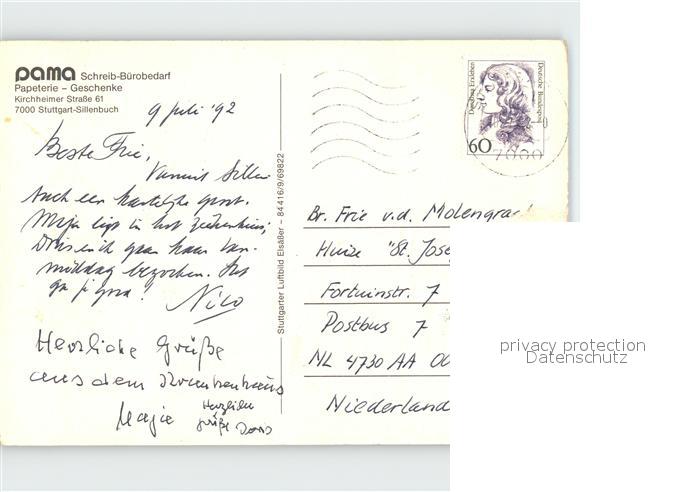 pama Schreib-Bürobedarf
Papeterie – Geschenke
Kirchheimer Straße 61
7000 Stuttgart-Sillenbuch
9 juli '92
Beste Frie,
Vanuit Sillen
Auch een hartelijke groet.
Maja ligt in het ziekenhuis;
Doris en ik gaan haar van-
middag bezoeken. Het
ga je goed!
Nico
Herzliche Grüße
aus dem Krankenhaus
Maja
Herzliche
Grüße Doris
Stuttgarter Luftbild Elsäßer – 84416/9/69822
Dorothea Erxleben
Deutsche Bundespost
60
7000
Br. Frie v.d. Molengra
Huize "St. Jose
Fortuinstr. 7
Postbus 7
NL 4730 AA OU
Niederland
privacy protection
Datenschutz